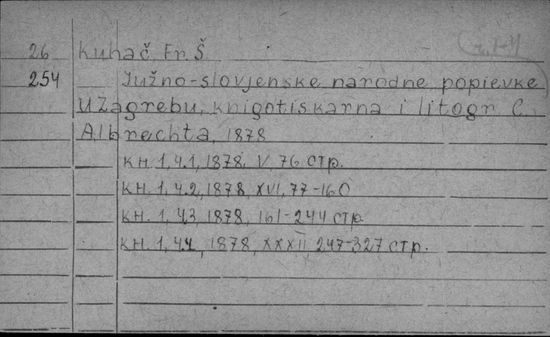 26 Kuhač Fr. Š
254 Južno-slovjenske narodne popievke
U Zagrebu, knigotiskarna i litogr C.
Albrechta, 1878
кн. 1, ч.1, 1878, V. 76 стр.
кн. 1, ч.2, 1878, XVI, 77-160
кн. 1, ч.3, 1878, 161-244 стр
кн. 1, ч.4, 1878, XXXII 247-327 стр.